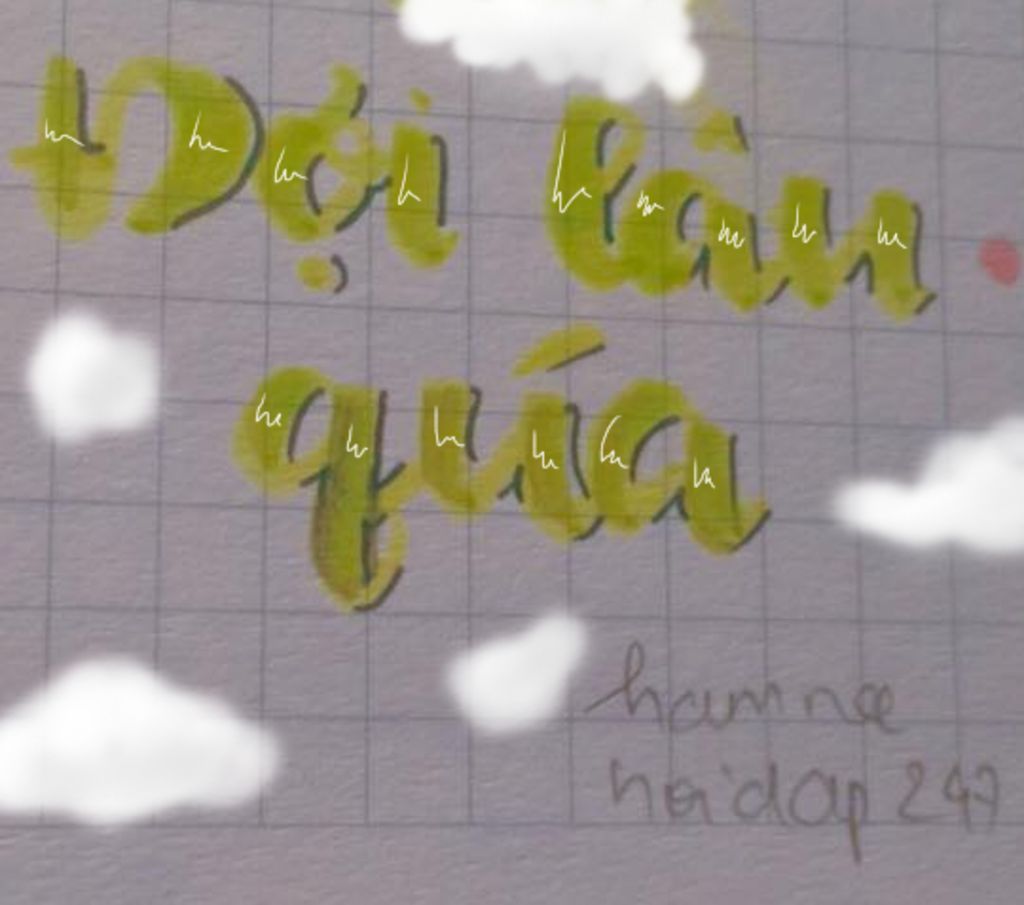 Đợi lâu
quá
hamnae
hoidap247